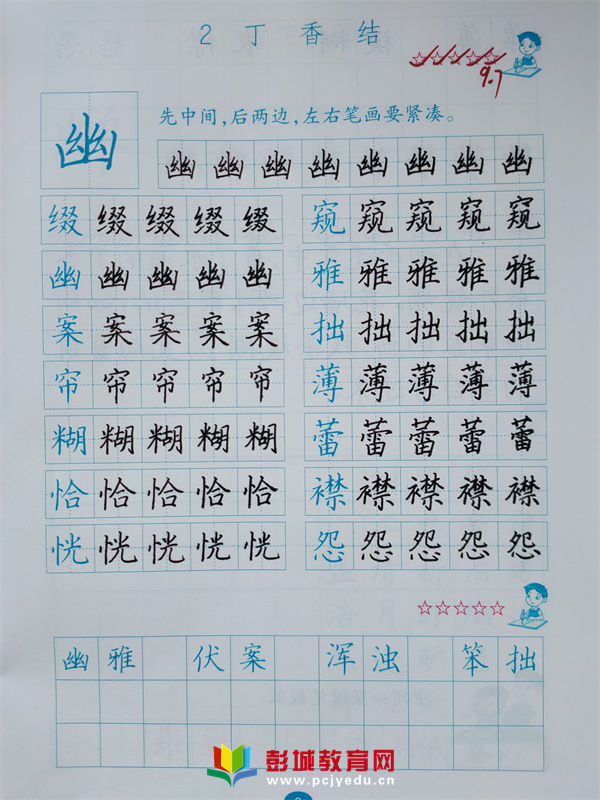 2 丁香结
9.7
先中间，后两边，左右笔画要紧凑。
幽
幽 幽 幽 幽 幽 幽 幽 幽
缀 缀 缀 缀 缀 窥 窥 窥 窥 窥
幽 幽 幽 幽 幽 雅 雅 雅 雅 雅
案 案 案 案 案 拙 拙 拙 拙 拙
帘 帘 帘 帘 帘 薄 薄 薄 薄 薄
糊 糊 糊 糊 糊 蕾 蕾 蕾 蕾 蕾
恰 恰 恰 恰 恰 襟 襟 襟 襟 襟
恍 恍 恍 恍 恍 怨 怨 怨 怨 怨
幽雅 伏案 浑浊 笨拙
彭城教育网
www.pcjyedu.cn